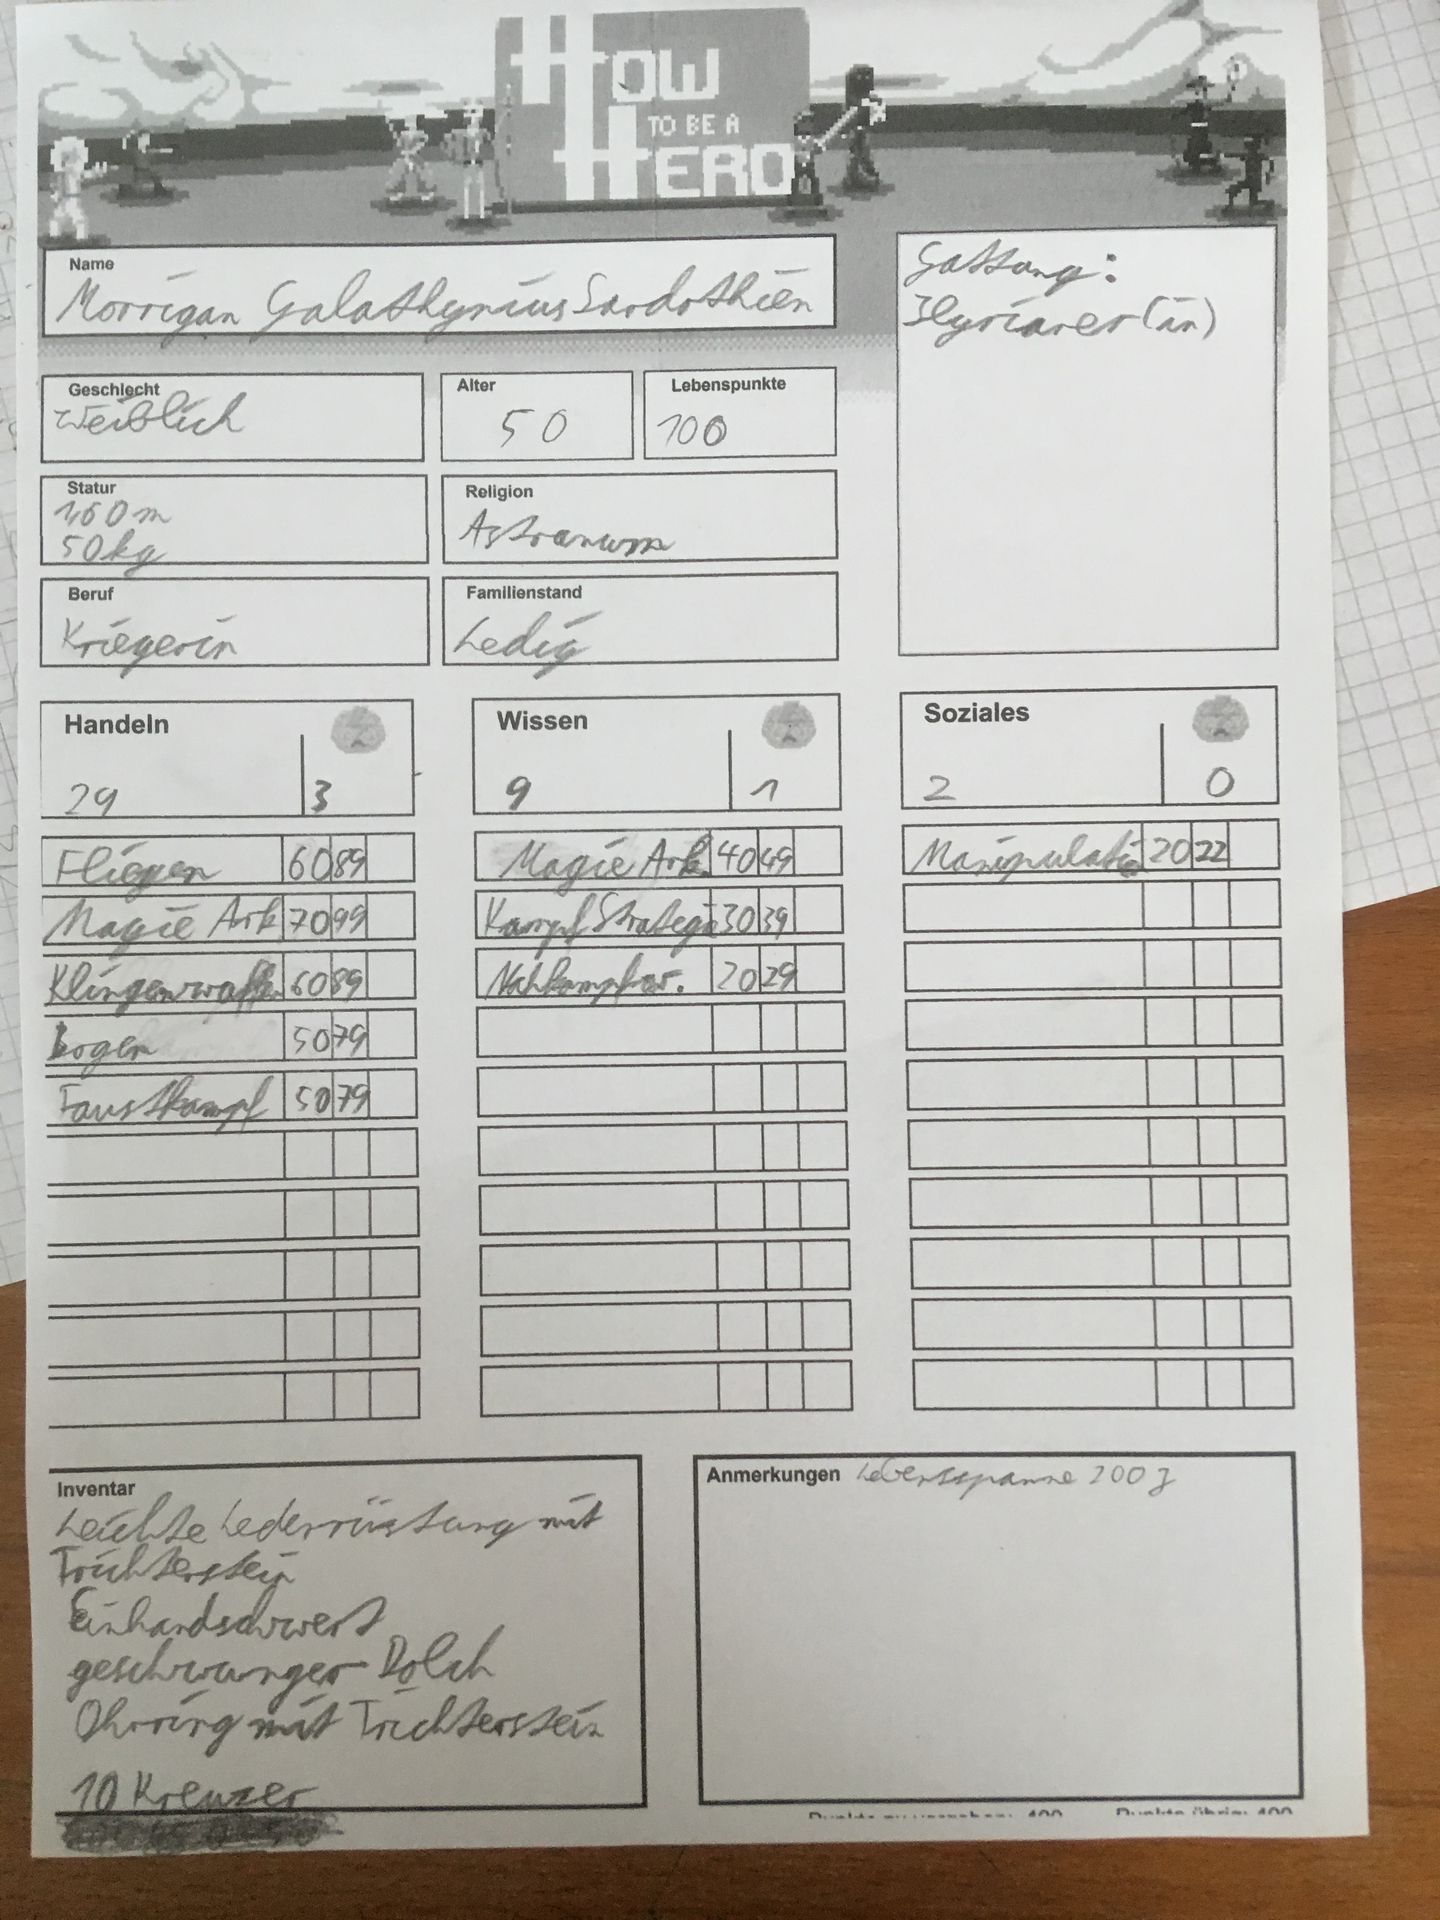 How
TO BE A
HERO
Name
Morrigan Galathynius Sardothien
Gattung:
Ilyrianer(in)
Geschlecht
Weiblich
Alter
50
Lebenspunkte
100
Statur
1,60m
50kg
Religion
Astranum
Beruf
Kriegerin
Familienstand
Ledig
Handeln
29 3
Wissen
9 1
Soziales
2 0
Fliegen 60 89
Magie Ark 70 99
Klingenwaffen 60 89
Bogen 50 79
Faustkampf 50 79
Magie Ark 40 49
Kampf Strategie 30 39
Nahkampfw. 20 29
Manipulatio 20 22
Inventar
Leichte Lederrüstung mit
Trichterstein
Einhandschwert
geschwungener Dolch
Ohrring mit Trichterstein
10 Kreuzer
Anmerkungen Lebensspanne 200 J